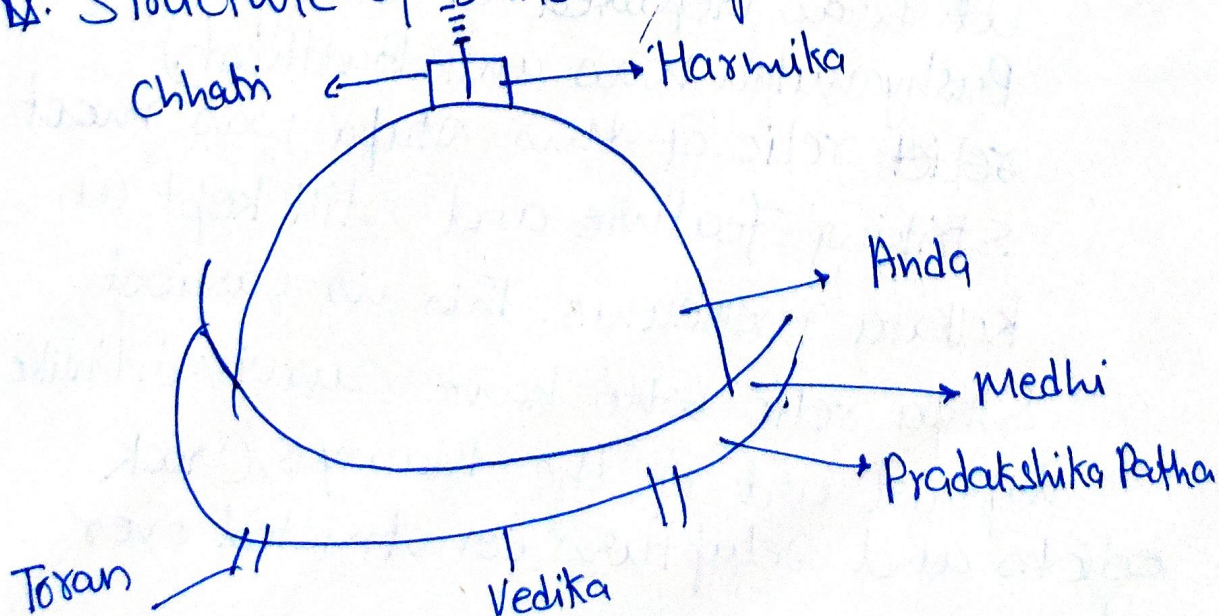 Structure of
Chhatri
Harmika
Anda
Medhi
Pradakshika Patha
Toran
Vedika